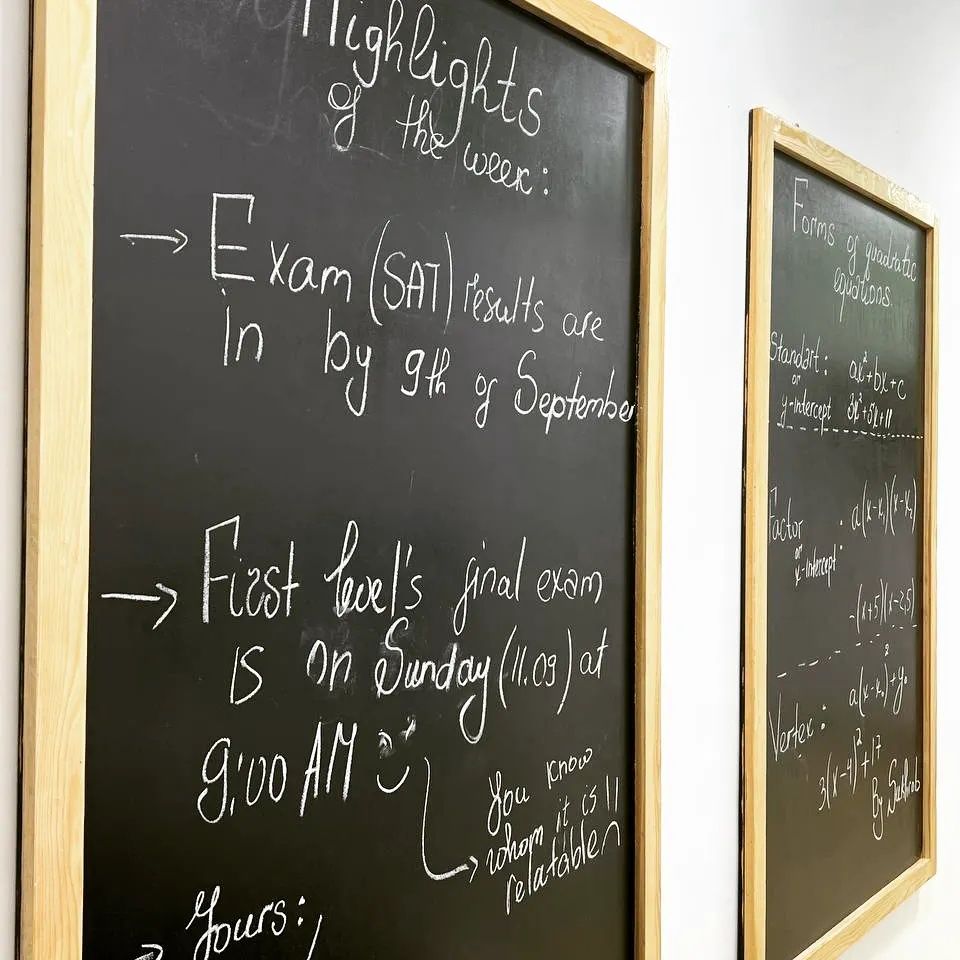 Highlights
of the week:
→ Exam (SAT) results are
in by 9th of September
→ First level's final exam
is on Sunday (11.09) at
9:00 AM
You know
whom it is
relatable
Yours:
Forms of quadratic
equations
Standart: ax²+bx+c
or
y-intercept 3x²+5x+11
Factor : a(x-x₁)(x-x₂)
or
x-intercept
-(x+5)(x-2,5)
Vertex: a(x-x₀)²+y₀
3(x-4)²+17
By Sukhrob